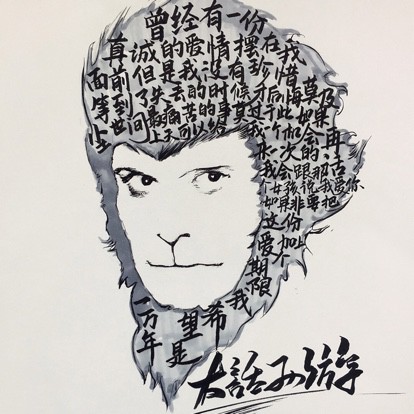 曾经有一份
真诚的爱情摆在我
面前但是我没有珍惜
等到了失去的时候才后悔莫及
尘世间最痛苦的事莫过于此
如果可以给我一个机会再来一次的话
我会跟那个女孩说我爱你
如果非要把
这份爱加上个期限
我希望是一万年
大話西游